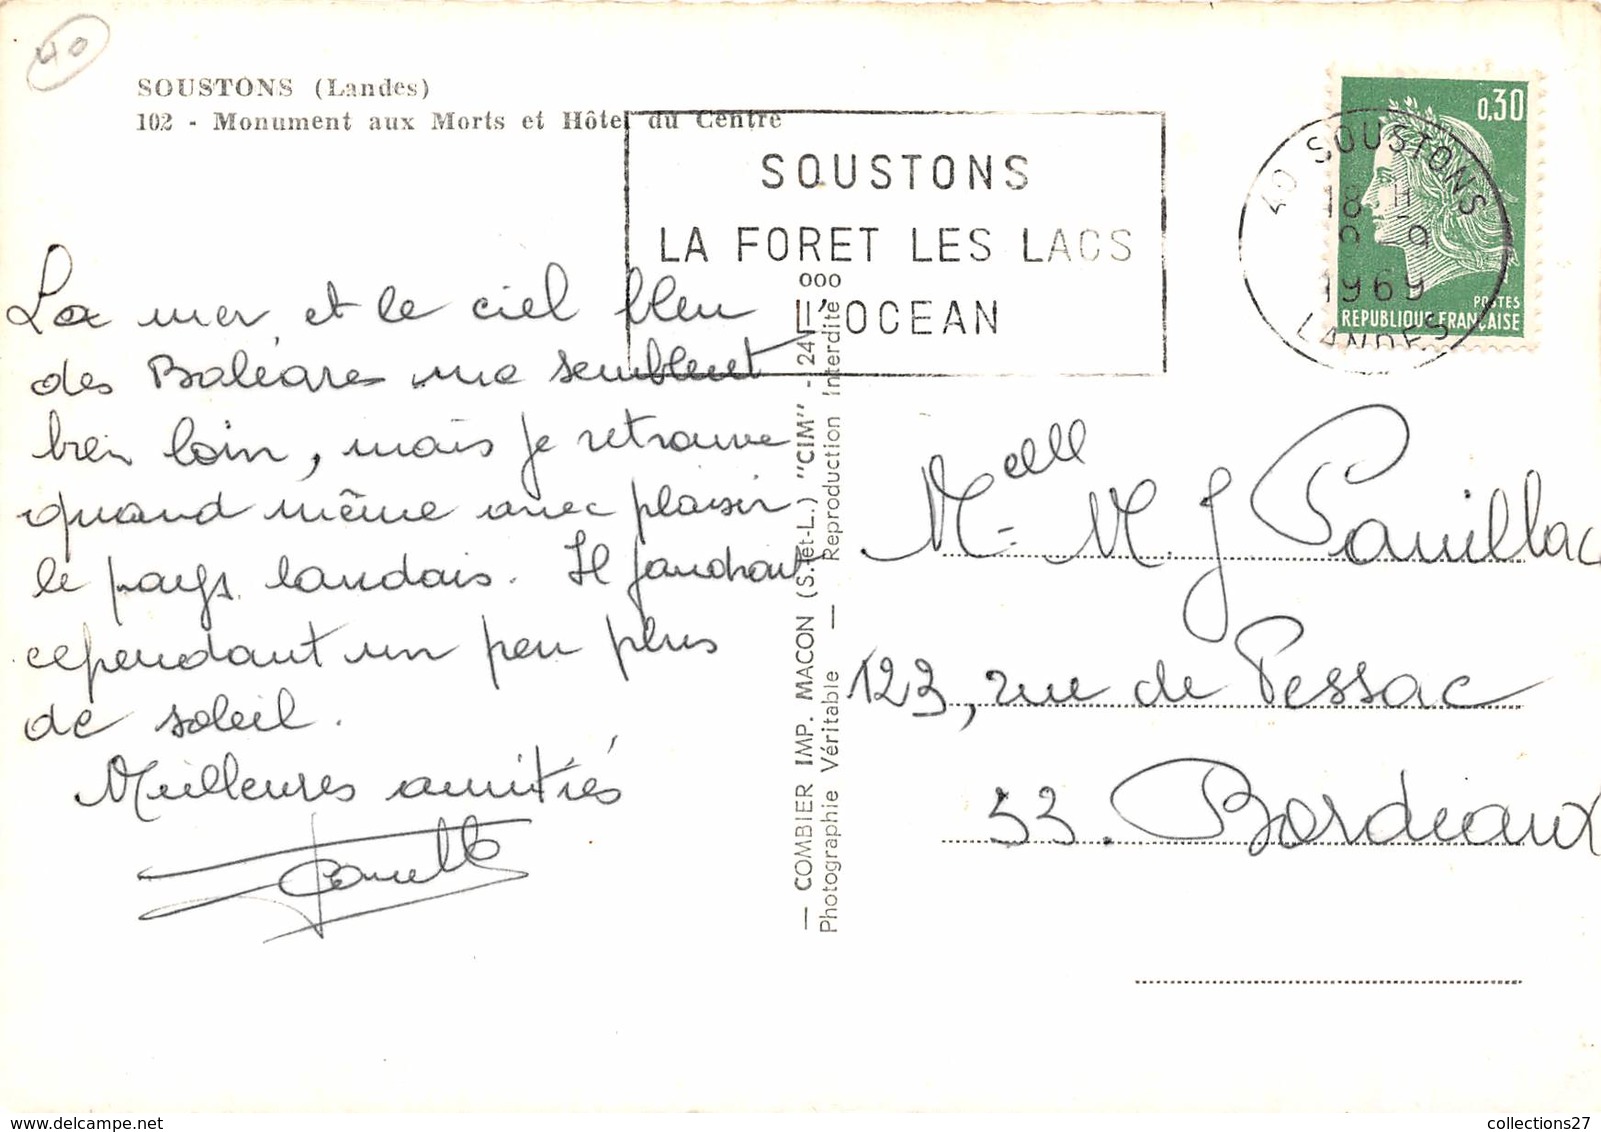 40
SOUSTONS (Landes)
102 - Monument aux Morts et Hôtel du Centre
SOUSTONS
LA FORET LES LACS
L'OCEAN
0,30
POSTES
REPUBLIQUE FRANÇAISE
40 SOUSTONS
18 H
9-9
1969
LANDES
La mer et le ciel bleu
des Baléares me semblent
bien loin, mais je retrouve
quand même avec plaisir
le pays landais. Il faudrait
cependant un peu plus
de soleil.
Meilleures amitiés
— COMBIER IMP. MACON (S.-et-L.) "CIM" - 24
Photographie Véritable — Reproduction Interdite
ooo
Melle M. J Pauillac
123, rue de Pessac
33. Bordeaux
collections27